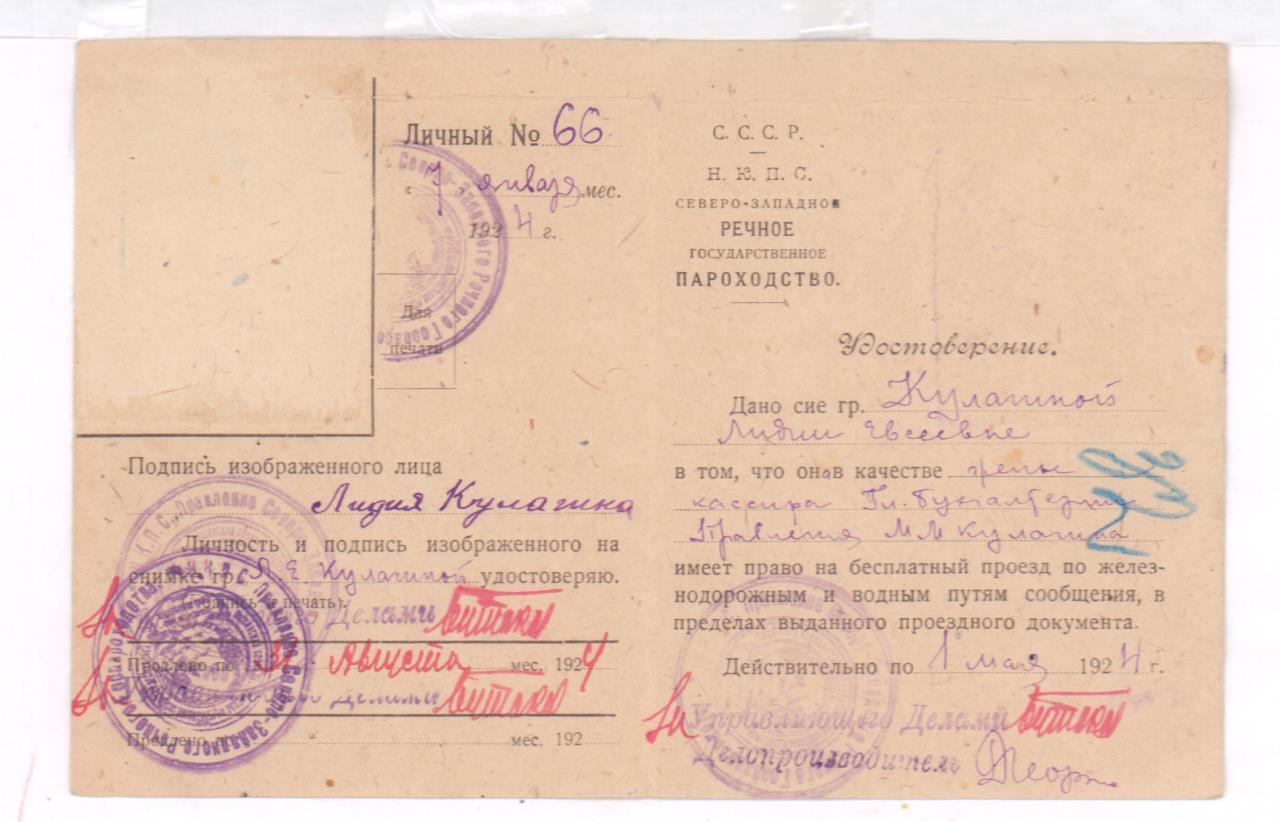 Личный № 66
« 7 января мес.
1924 г.
Для
печати
Подпись изображенного лица
Лидия Кулагина
Личность и подпись изображенного на
снимке гр. Л. Е. Кулагиной удостоверяю.
(подпись и печать).
Делами
Продлено по 31 Августа мес. 1924
Делами
Продлено по мес. 192
С. С. С. Р.
Н. К. П. С.
СЕВЕРО-ЗАПАДНОЕ
РЕЧНОЕ
ГОСУДАРСТВЕННОЕ
ПАРОХОДСТВО.
Удостоверение.
Дано сие гр. Кулагиной
Лидии Евсеевне
в том, что она в качестве
кассира Гл. Бухгалтерии
Правления М М Кулагина,
имеет право на бесплатный проезд по желез-
нодорожным и водным путям сообщения, в
пределах выданного проездного документа.
Действительно по 1 мая 1924 г.
Управляющего Делами
Делопроизводитель